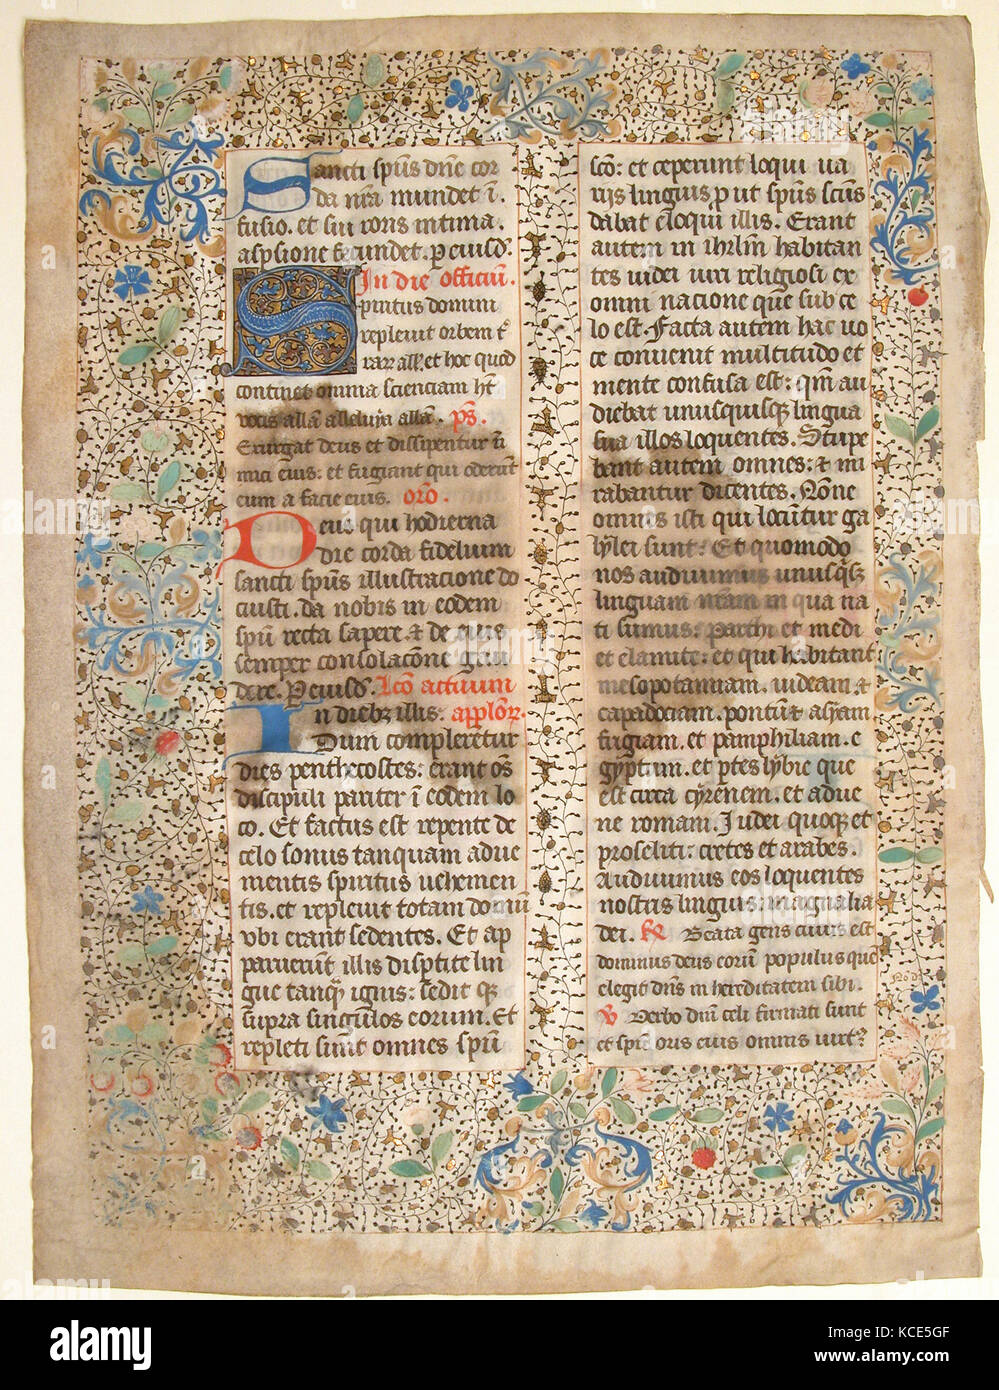 Sancti spūs dñe cor
da nr̄a mundet ī
fusio. et sui roris intima
aspsione fecundet. p eiusd̄.
In die officiū.
Spiritus domini
repleuit orbem t̄
rarz all̄. et hoc quod
continet omnia scienciam ht̄
vocis allā alleluya allā. ps̄.
Exurgat deus et dissipentur ī
mici eius: et fugiant qui oderūt
eum a facie eius. or̄o.
Deus qui hodierna
die corda fidelium
sancti spūs illustracione do
cuisti. da nobis in eodem
spū recta sapere et de eius
semper consolacōne gau
dere. P eiusd̄. Lc̄o actuum
In diebz illis. apl̄orz.
Dum complerētur
dies penthecostes: erant ōs
discipuli pariter ī eodem lo
co. Et factus est repente de
celo sonus tanquam adue
nientis spiritus uehemen
tis. et repleuit totam domū
vbi erant sedentes. Et ap
paruerūt illis disptite lin
gue tanqz ignis: sedit qz
supra singulos eorum. Et
repleti sunt omnes spū
scō: et ceperunt loqui ua
rijs linguis put spūs scūs
dabat eloqui illis. Erant
autem in ihrlm̄ habitan
tes iudei uiri religiosi ex
omni nacione que sub ce
lo est. Facta autem hac uo
ce conuenit multitudo et
mente confusa est: qm̄ au
diebat unusquisqz lingua
sua illos loquentes. Stupe
bant autem omnes: et mi
rabantur dicentes. Nōne
omnes isti qui locūtur ga
lylei sunt: Et quomodo
nos audiuimus unusqz
linguam nr̄am in qua na
ti sumus: Parthi et medi
et elamite: et qui habitant
mesopotamiam. iudeam et
capadociam. pontū et asyam
frigiam. et pamphiliam. e
gyptum. et ptes lybie que
est circa cyrenem. et adue
ne romani. Judei quoqz et
proseliti: cretes et arabes.
Audiuimus eos loquentes
nostris linguis: magnalia
dei. Beata gens cuius est
dominus deus eorū populus quē
elegit dn̄s in hereditatem sibi.
V Verbo dn̄i celi firmati sunt
et spū oris eius omnis uirt9
a alamy stock photo
alamy
Image ID: KCE5GF
www.alamy.com